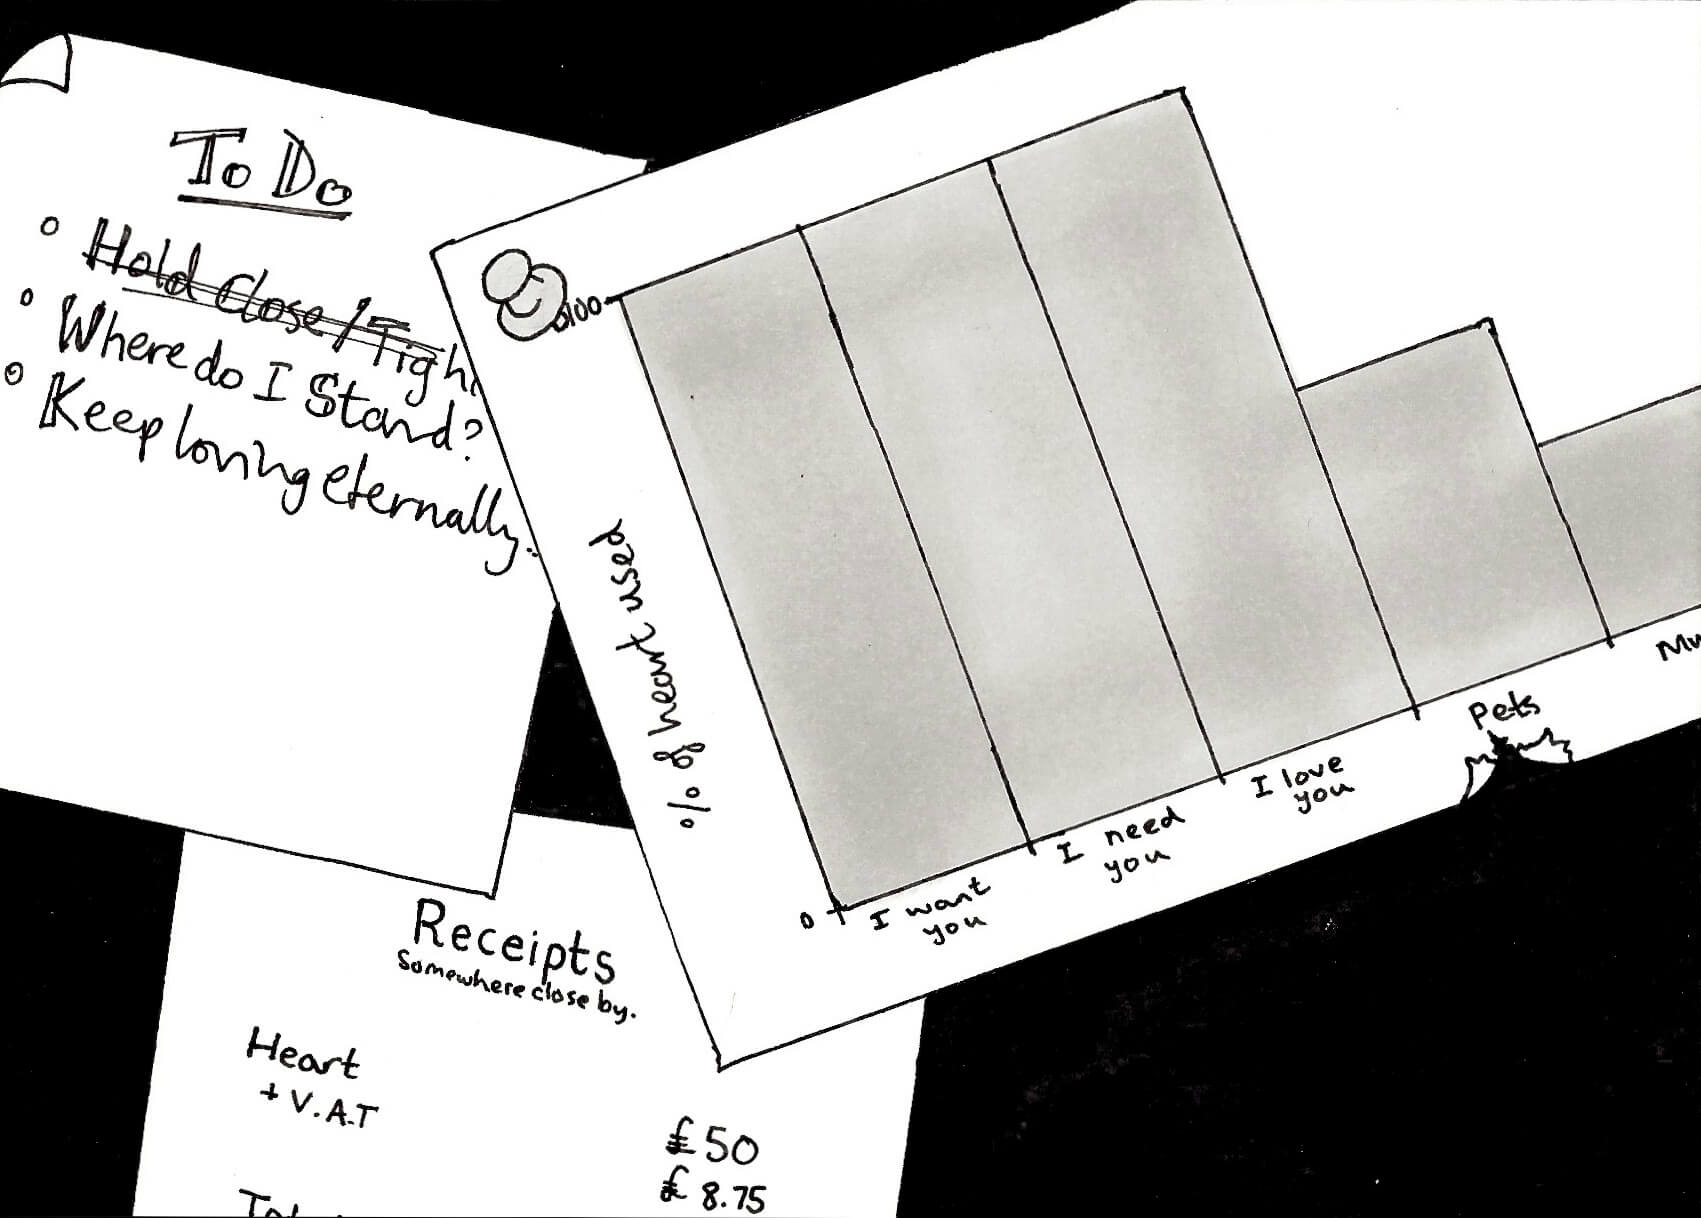 To Do
Hold Close / Tigh
Where do I Stand?
Keep loving eternally.
100
% of heart used
0
I want
you
I need
you
I love
you
Pets
Receipts
Somewhere close by.
Heart
+ V.A.T
£50
£ 8.75